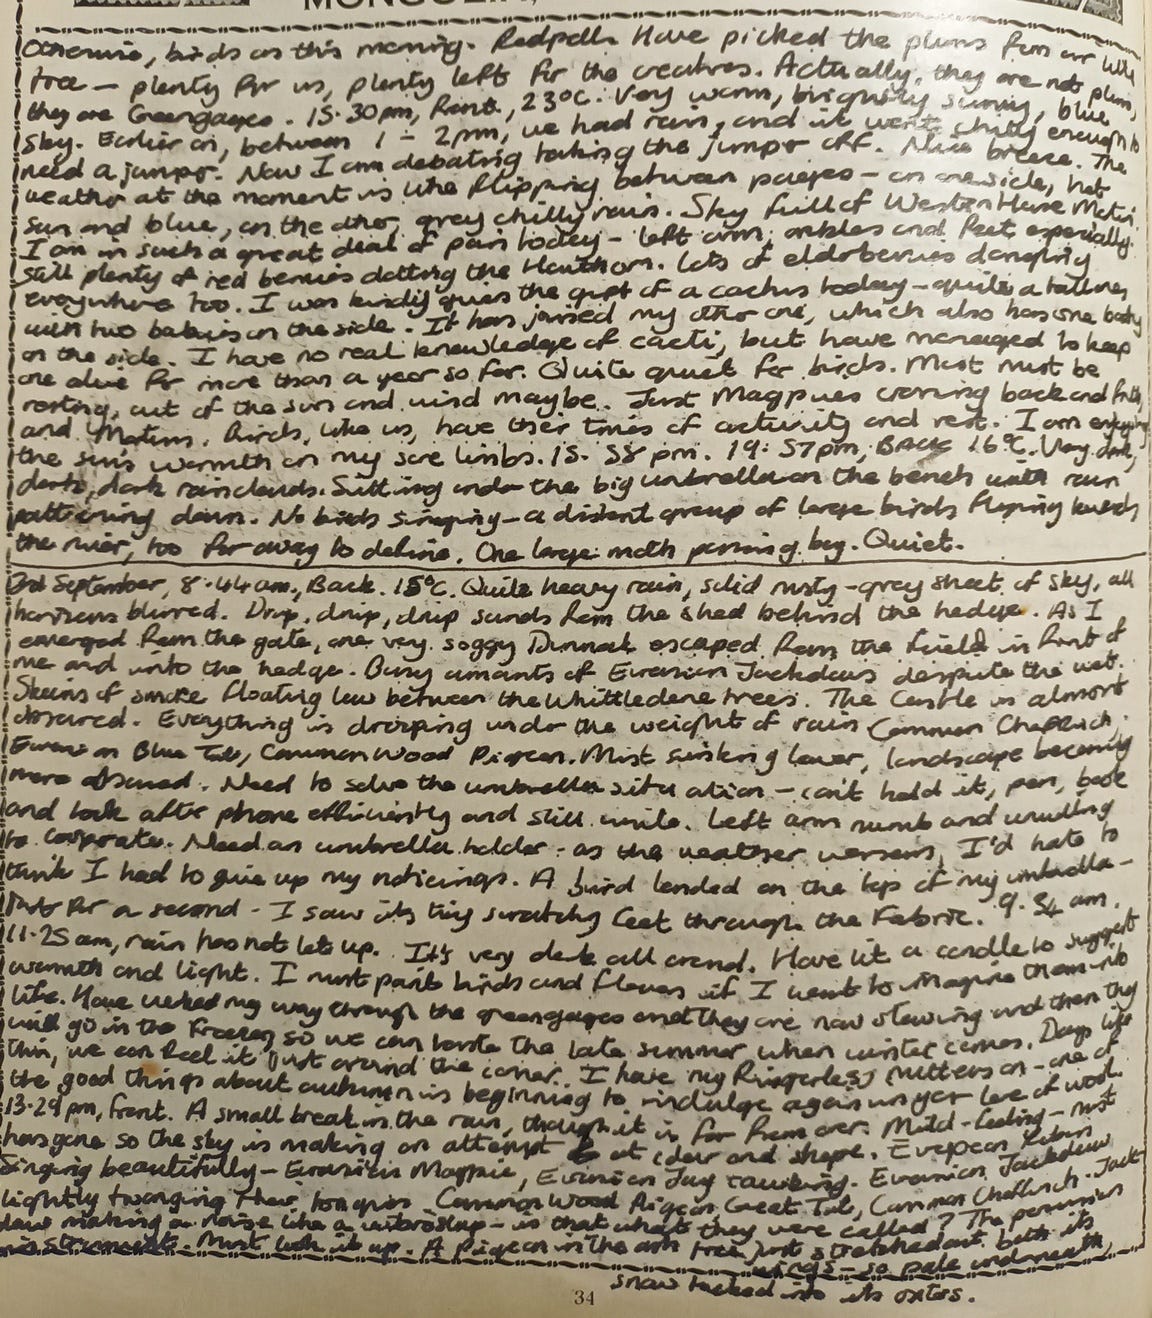 MONGOLIA,
Otherwise, birds as this morning. Redpolls. Have picked the plums from our little
tree — plenty for us, plenty left for the creatures. Actually, they are not plums,
they are Greengages. 15.30pm, Front, 23°C. Very warm, brightly sunny, blue
sky. Earlier on, between 1 - 2pm, we had rain, and it went chilly enough to
need a jumper. Now I am debating taking the jumper off. Nice breeze. The
weather at the moment is like flipping between pages — on one side, hot
sun and blue, on the other, grey chilly rain. Sky full of Western House Martins
I am in such a great deal of pain today - left arm, ankles and feet especially.
Still plenty of red berries dotting the Hawthorn. Lots of elderberries dangling
everywhere too. I was kindly given the gift of a cactus today — quite a tall one,
with two babies on the side. It has joined my other one, which also has one baby
on the side. I have no real knowledge of cacti, but have managed to keep
one alive for more than a year so far. Quite quiet for birds. Most must be
resting, out of the sun and wind maybe. Just Magpies crossing back and forth,
and Martins. Birds, like us, have their times of activity and rest. I am enjoying
the sun's warmth on my sore limbs. 15.58pm. 19:57pm, BACK 16°C. Very dark,
dark, dark rainclouds. Sitting under the big umbrella on the bench with rain
pattering down. No birds singing — a distant group of large birds flapping towards
the river, too far away to define. One large moth passing by. Quiet.
3rd September, 8.44am, Back. 15°C. Quite heavy rain, solid misty-grey sheet of sky, all
horizons blurred. Drip, drip, drip sounds from the shed behind the hedge. As I
emerged from the gate, one very soggy Dunnock escaped from the field in front of
me and into the hedge. Busy amounts of Eurasian Jackdaws despite the wet.
Skeins of smoke floating low between the Whittledene trees. The Castle is almost
obscured. Everything is drooping under the weight of rain Common Chaffinch.
Eurasian Blue Tit, Common Wood Pigeon. Mist sinking lower, landscape becoming
more obscured. Need to solve the umbrella situation — can't hold it, pen, book
and look after phone efficiently and still write. Left arm numb and unwilling
to cooperate. Need an umbrella holder - as the weather worsens, I'd hate to
think I had to give up my noticings. A bird landed on the top of my umbrella —
just for a second - I saw its tiny scratchy feet through the fabric. 9.34am.
11.25am, rain has not let up. It's very dark all around. Have lit a candle to suggest
warmth and light. I must paint birds and flowers if I want to imagine them into
life. Have worked my way through the greengages and they are now stewing and then they
will go in the freezer, so we can taste the late summer when winter comes. Days like
this, we can feel it just around the corner. I have my fingerless mittens on - one of
the good things about autumn is beginning to indulge again in your love of wool.
13.29pm, front. A small break in the rain, though it is far from over. Mild-feeling - mist
has gone so the sky is making an attempt at colour and shape. European Robin
singing beautifully - Eurasian Magpie, Eurasian Jay Eurasian Jackdaw
lightly twanging their tongues. Common Wood Pigeon Great Tit, Common Chaffinch. Jack-
daw making a noise like a vibraslap - is that what they were called? The percussion
instrument. Must look it up. A Pigeon in the ash tree just stretched out both its
wings - so pale underneath,
snow tucked into its oxters.
34